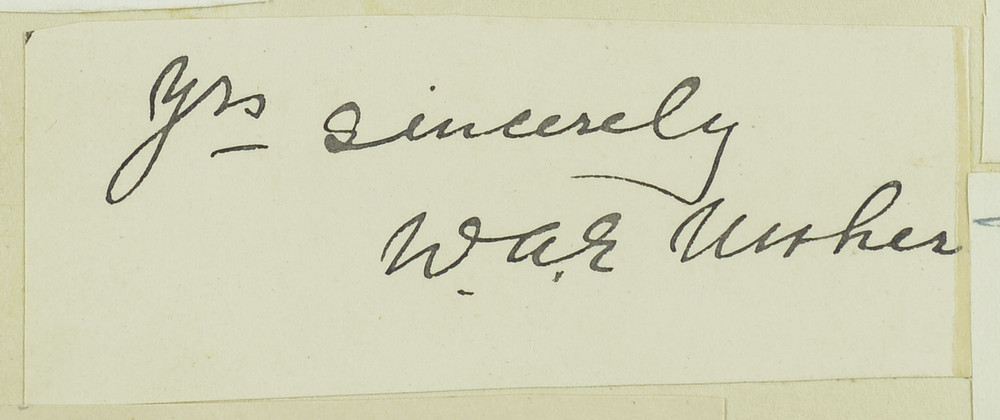 Yrs sincerely
W. A. E Ussher